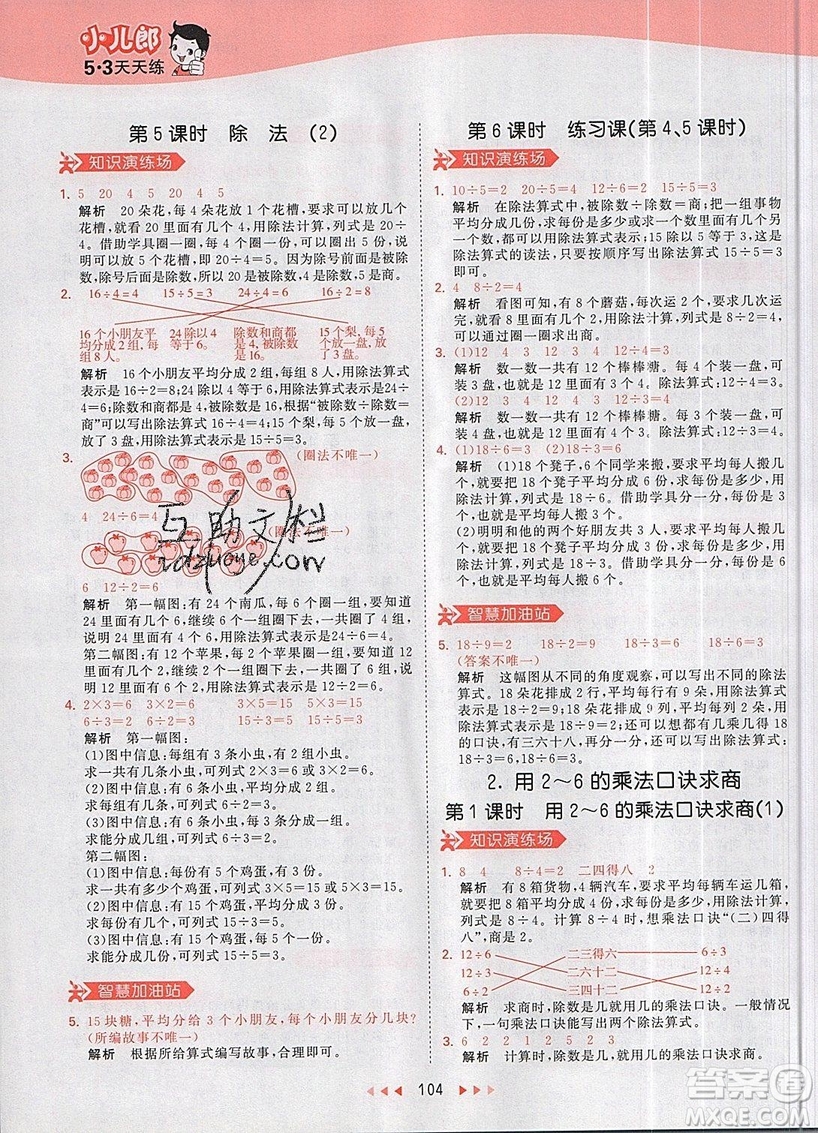 小儿郎
5·3天天练
第5课时 除 法 (2)
知识演练场
1. 5 20 4 5 20 4 5
解析 20朵花,每4朵花放1个花槽,要求可以放几个
花槽,就看20里面有几个4,用除法计算,列式是20÷
4=5。借助学具圈一圈,每4个圈一份,可以圈出5份,说
明可以放5个花槽,即20÷4=5。因为除号前面是被除
数,除号后面是除数,所以20是被除数,4是除数,5是商。
2. 16÷4=4 15÷5=3 24÷4=6 16÷2=8
16个小朋友平 24除以4 除数和商都 15个梨,每5
均分成2组,每 等于6。 是4,被除数 个放一盘,放
组8人。 是16。 了3盘。
解析 16个小朋友平均分成2组,每组8人,用除法算式
表示是16÷2=8;24除以4等于6,用除法算式表示是24÷
4=6;除数和商都是4,被除数是16,根据“被除数÷除数=
商”可以写出除法算式16÷4=4;15个梨,每5个放一盘,
放了3盘,用除法算式表示是15÷5=3。
3. (圈法不唯一)
4 24÷6=4
(圈法不唯一)
6 12÷2=6
解析 第一幅图:有24个南瓜,每6个圈一组,要知道24
里面有几个6,继续6个一组圈下去,一共圈了4组,说明
24里面有4个6,用除法算式表示是24÷6=4。
第二幅图:有12个苹果,每2个苹果圈一组,要知道12里
面有几个2,继续2个一组圈下去,一共圈了6组,说明
12里面有6个2,用除法算式表示是12÷2=6。
4. 2×3=6 6÷2=3 3×5=15 15÷3=5
6÷3=2 6÷2=3 15÷5=3 15÷3=5
解析 第一幅图:
(1)图中信息:每组有3条小虫,有2组。
求一共有几条小虫,可列式2×3=6。
(2)图中信息:一共有6条小虫,平均分成2组。
求每组有几条,可列式6÷2=3。
(3)图中信息:一共有6条小虫,每组有3条。
求能分成几组,可列式6÷3=2。
第二幅图:
(1)图中信息:每份有5个鸡蛋,有3份。
求一共有多少个鸡蛋,可列式3×5=15。
(2)图中信息:一共有15个鸡蛋,平均分成5份。
求每份有几个,可列式15÷5=3。
(3)图中信息:一共有15个鸡蛋,每份有5个。
求能分成几份,可列式15÷5=3。
智慧加油站
5. 15块糖,平均分给3个小朋友,每个小朋友分几块?
(所编故事不唯一)
解析 根据所给算式编写故事,合理即可。
第6课时 练习课(第4、5课时)
知识演练场
1. 10÷5=2 20÷5=4 12÷6=2 15÷5=3
解析 在除法算式中,被除数÷除数=商;把一组事物
平均分成几份,求每份是多少或求一个数里面有几个
另一个数,用除法算式表示;15除以5等于3,这是
除法算式的读法,只要按顺序用除法算式表示15÷5=3
即可。
2. 4 8÷2=4
解析 看图可知,有8个蘑菇,每次运2个,要求几次运
完,就看8里面有几个2,用除法计算,列式是8÷2=4,可
以通过圈一圈求出商。
3. (1)12 4 3 12 4 3 12÷4=3
解析 数一数一共有12个棒棒糖。每4个装一盘,可
装3盘,用除法算式表示是12÷4=3。
(2)12 3 4 12÷3=4
解析 数一数一共有12个棒棒糖。平均装3盘,每盘
装4个,用除法算式表示是12÷3=4。
4.
解析 (1)18个凳子,6个同学来搬,要求平均每人搬几
个,就要把18个凳子平均分成6份,求每份是多少,用除
法计算,列式是18÷6。借助学具分一分,平均每人搬3
个,所以18÷6=3。
(2)明明和他的两个好朋友共3人,要求平均每人搬几
个,就要把18个凳子平均分成3份,求每份是多少,用
除法计算,列式是18÷3。借助学具分一分,平均每人搬
6个,所以18÷3=6。
智慧加油站
5. 18÷9=2 18÷2=9 18÷3=6 18÷6=3
(答案不唯一)
解析 这幅图从不同的角度观察,可以写出不同的除法
算式。18朵花排成几行,平均每行有几朵,或者每几朵一行,
用除法算式表示是18÷9=2;还可以想几乘几得18
的口诀,有三六十八,所以还可以写出除法算式18÷6=3,
18÷3=6等。
2. 用2~6的乘法口诀求商
第1课时 用2~6的乘法口诀求商(1)
知识演练场
1. 8 4 8÷4=2 二四得八 2
解析 有8箱货物,4辆汽车,要求平均每辆车运几箱,
就要把8箱平均分成4份,求每份是多少,用除法计算,
列式是8÷4=2。计算8÷4时,想乘法口诀“(二)四得
八”,商是2。
2. 12÷6 二三得六 6÷3
12÷3 二六十二 12÷2
12÷4 三四十二 6÷2
解析 求商时,除数是几就用几的乘法口诀。一般情况
下,一句乘法口诀能写出两个除法算式。
3. 6 2 2 3 2 1 2 5 3
解析 计算时,除数是几,就想几的乘法口诀求商。
104
互助文档
答案圈
MXQE.COM